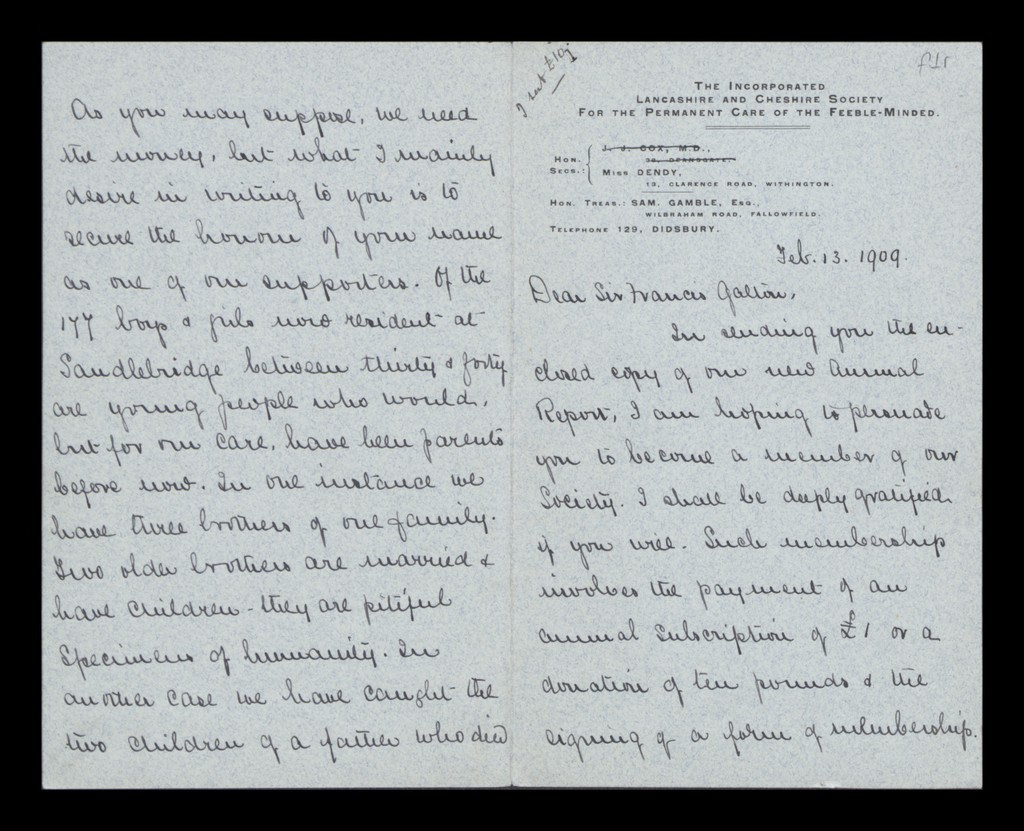 I sent £10
f1r
THE INCORPORATED
LANCASHIRE AND CHESHIRE SOCIETY
FOR THE PERMANENT CARE OF THE FEEBLE-MINDED.
HON. SECS.:
J. J. COX, M.D.,
38, DEANSGATE.
MISS DENDY,
13, CLARENCE ROAD, WITHINGTON.
HON. TREAS.: SAM. GAMBLE, ESQ.,
WILBRAHAM ROAD, FALLOWFIELD.
TELEPHONE 129, DIDSBURY.
Feb. 13. 1909.
Dear Sir Francis Galton,
In sending you the en-
closed copy of our new Annual
Report, I am hoping to persuade
you to become a member of our
Society. I shall be deeply gratified
if you will. Such membership
involves the payment of an
annual subscription of £1 or a
donation of ten pounds & the
signing of a form of membership.
As you may suppose, we need
the money, but what I mainly
desire in writing to you is to
secure the honour of your name
as one of our supporters. Of the
177 boys & girls now resident at
Sandlebridge between thirty & forty
are young people who would,
but for our care, have been parents
before now. In one instance we
have three brothers of one family.
Two older brothers are married &
have children - they are pitiful
specimens of humanity. In
another case we have caught the
two children of a father who died